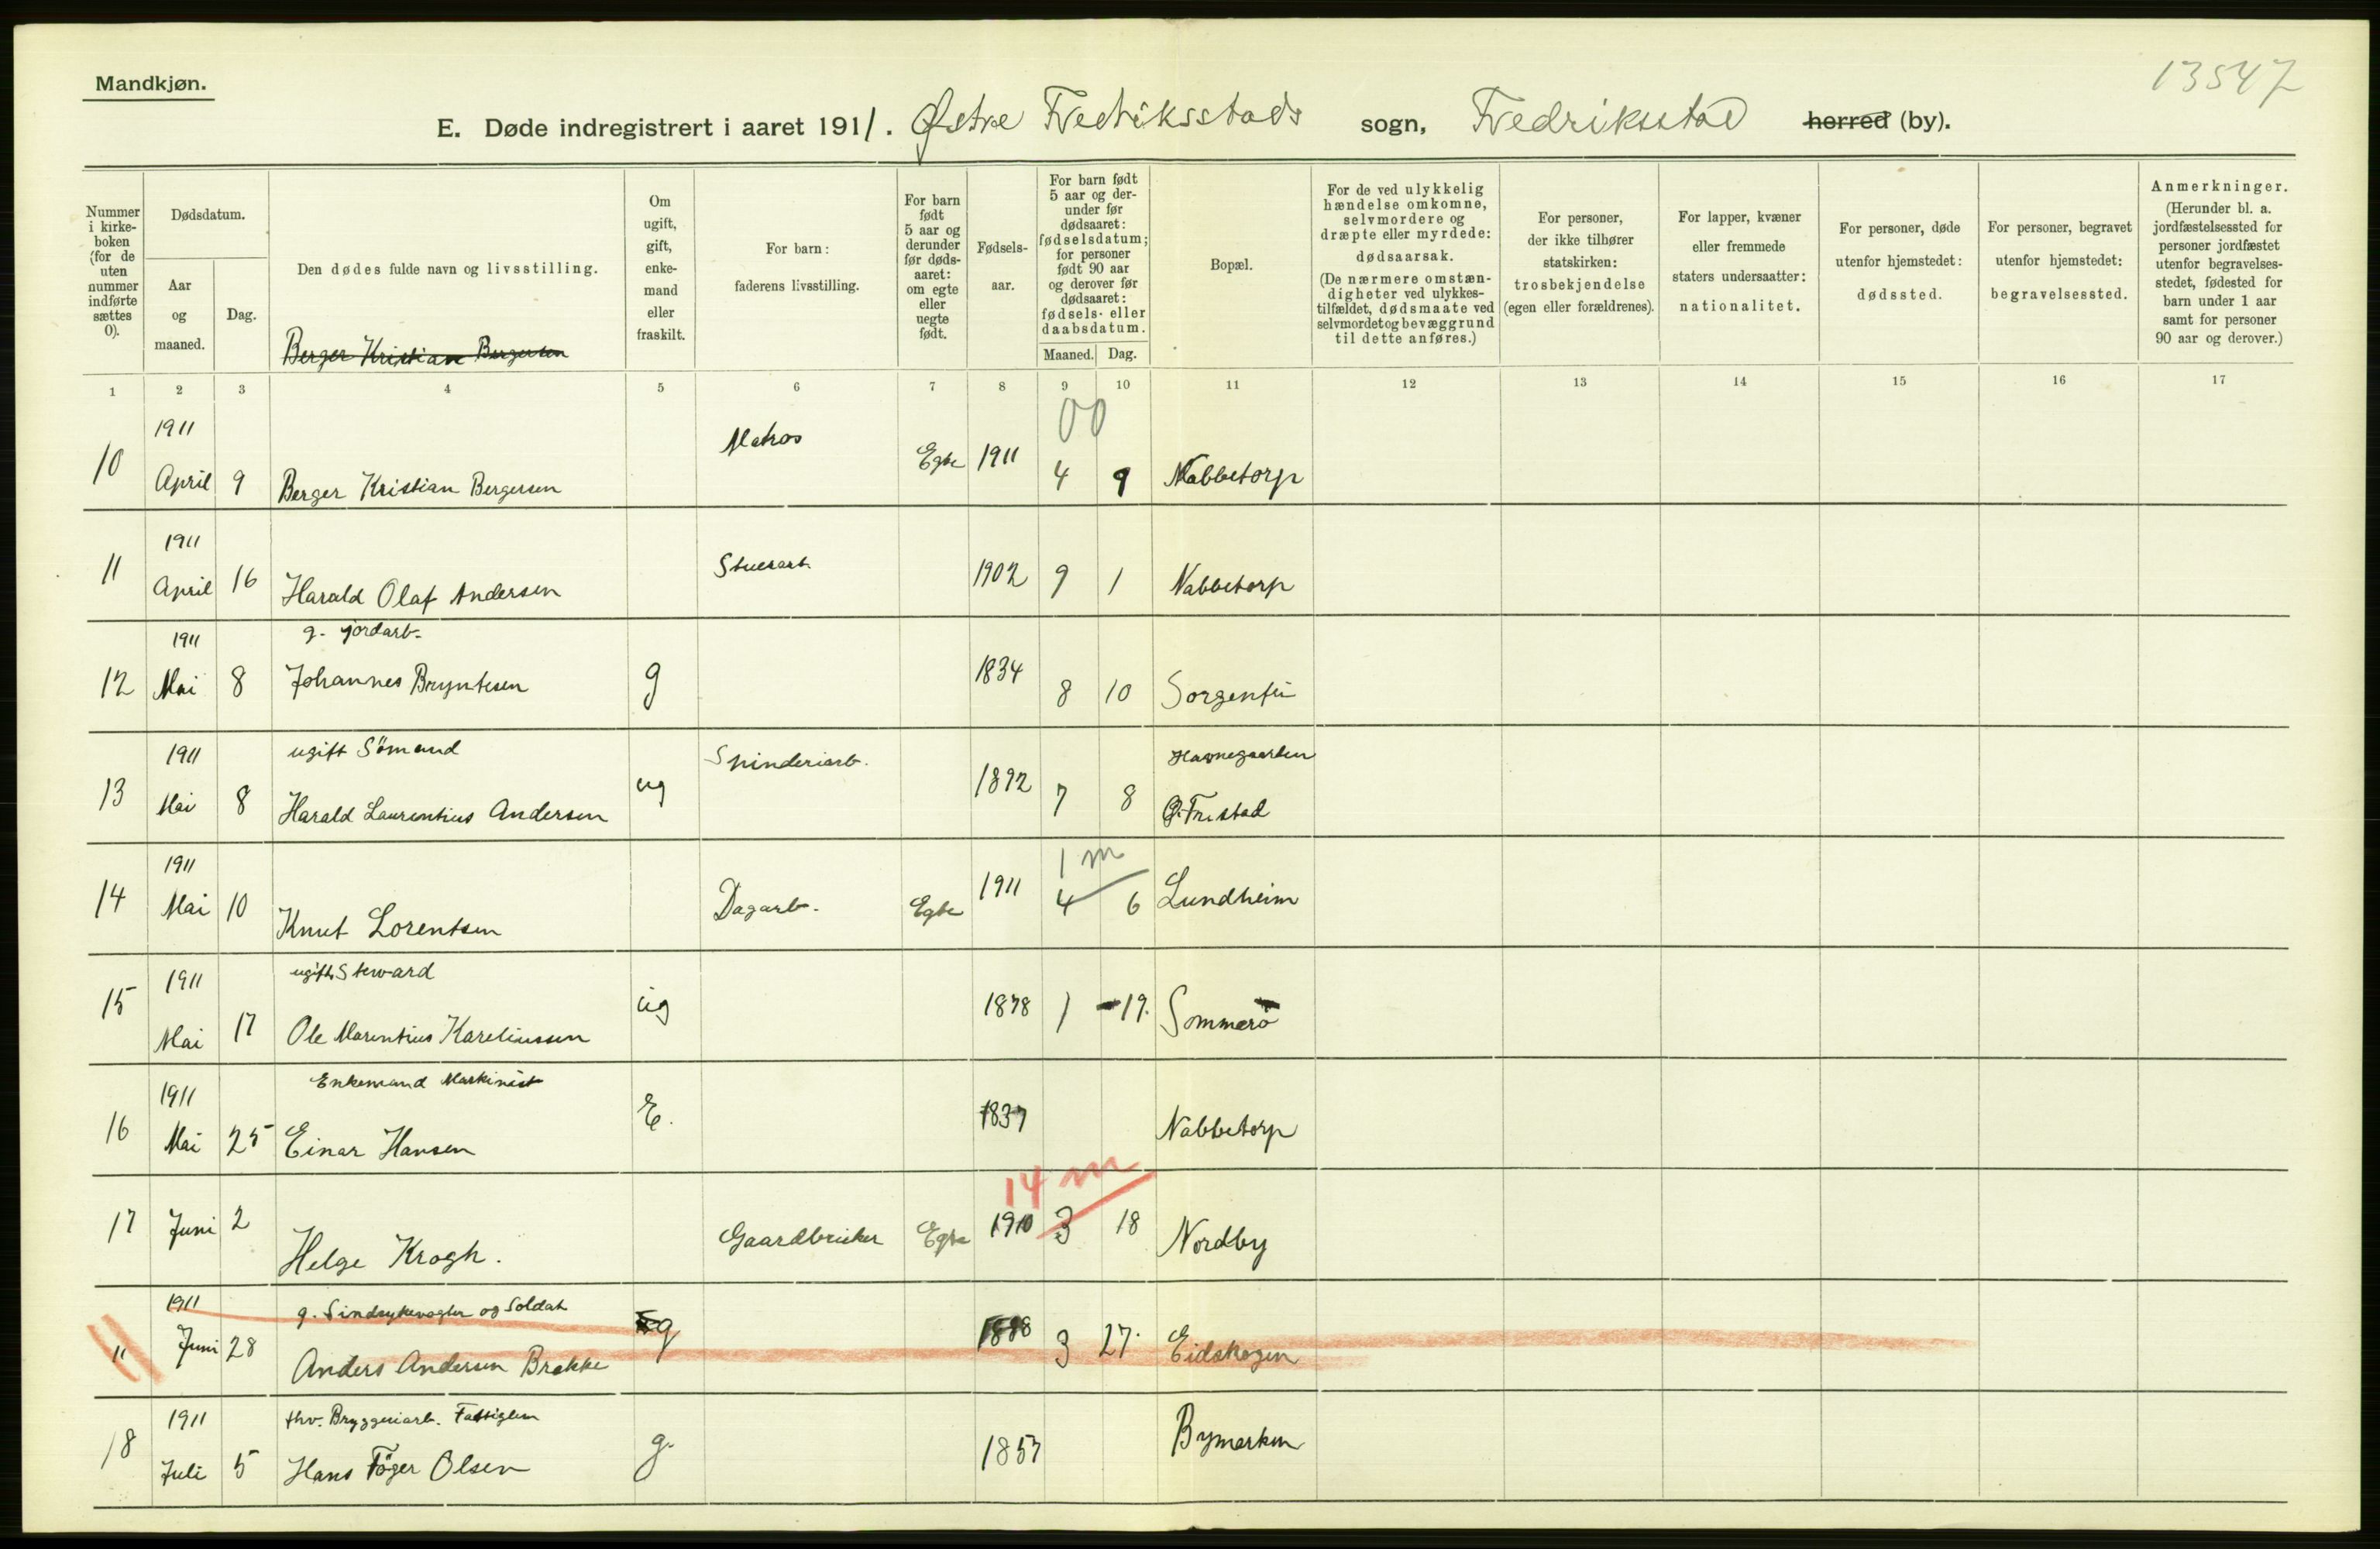 Mandkjøn.
13547
E. Døde indregistrert i aaret 1911. Østre Fredriksstads sogn, Fredriksstad herred (by).
Nummer i kirkeboken (for de uten nummer indførte sættes 0).
Dødsdatum.
Aar og maaned.
Dag.
Den dødes fulde navn og livsstilling.
Berger Kristian Bergersen
Om ugift, gift, enkemand eller fraskilt.
For barn: faderens livsstilling.
For barn født 5 aar og derunder før dødsaaret: om egte eller uegte født.
Fødselsaar.
For barn født 5 aar og derunder før dødsaaret: fødselsdatum; for personer født 90 aar og derover før dødsaaret: fødsels- eller daabsdatum.
Maaned. Dag.
Bopæl.
For de ved ulykkelig hændelse omkomne, selvmordere og dræpte eller myrdede: dødsaarsak. (De nærmere omstændigheter ved ulykkestilfældet, dødsmaate ved selvmordet og bevæggrund til dette anføres.)
For personer, der ikke tilhører statskirken: trosbekjendelse (egen eller forældrenes).
For lapper, kvæner eller fremmede staters undersaatter: nationalitet.
For personer, døde utenfor hjemstedet: dødssted.
For personer, begravet utenfor hjemstedet: begravelsessted.
Anmerkninger. (Herunder bl. a. jordfæstelsessted for personer jordfæstet utenfor begravelsesstedet, fødested for barn under 1 aar samt for personer 90 aar og derover.)
1 2 3 4 5 6 7 8 9 10 11 12 13 14 15 16 17
1911 Matros 00
10 April 9 Berger Kristian Bergersen Egte 1911 4 9 Nabbetorp
1911 Stuerarb.
11 April 16 Harald Olaf Andersen 1902 9 1 Nabbetorp
1911 g. jordarb.
12 Mai 8 Johannes Bryntesen g 1834 8 10 Sorgenfri
1911 ugift Sömand Spinderiarb. Havnegaarden
13 Mai 8 Harald Laurentius Andersen ug 1892 7 8 Ø. Fr.stad
1911 1 m
14 Mai 10 Knut Lorentsen Dagarb. Egte 1911 4 6 Lundheim
1911 ugift Steward
15 Mai 17 Ole Marentius Kareliussen ug 1878 1 19. Sommerö
1911 Enkemand Maskinist
16 Mai 25 Einar Hansen E. 1837 Nabbetorp
14 m
17 Juni 2 Helge Krogh. Gaardbruker Egte 1910 3 18 Nordby
1911 g. Sindsykevogter og Soldat
" Juni 28 Anders Andersen Brekke g 1888 3 27. Eidskogen
1911 fhv. Bryggeriarb. Fattiglem
18 Juli 5 Hans Föger Olsen g. 1857 Bymarken